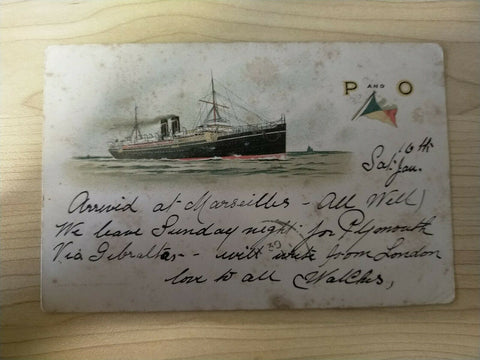 P AND O
16th
Sat. Jan.
Arrived at Marseilles - All Well)
We leave Sunday night for Plymouth
Via Gibraltar - will write from London
love to all